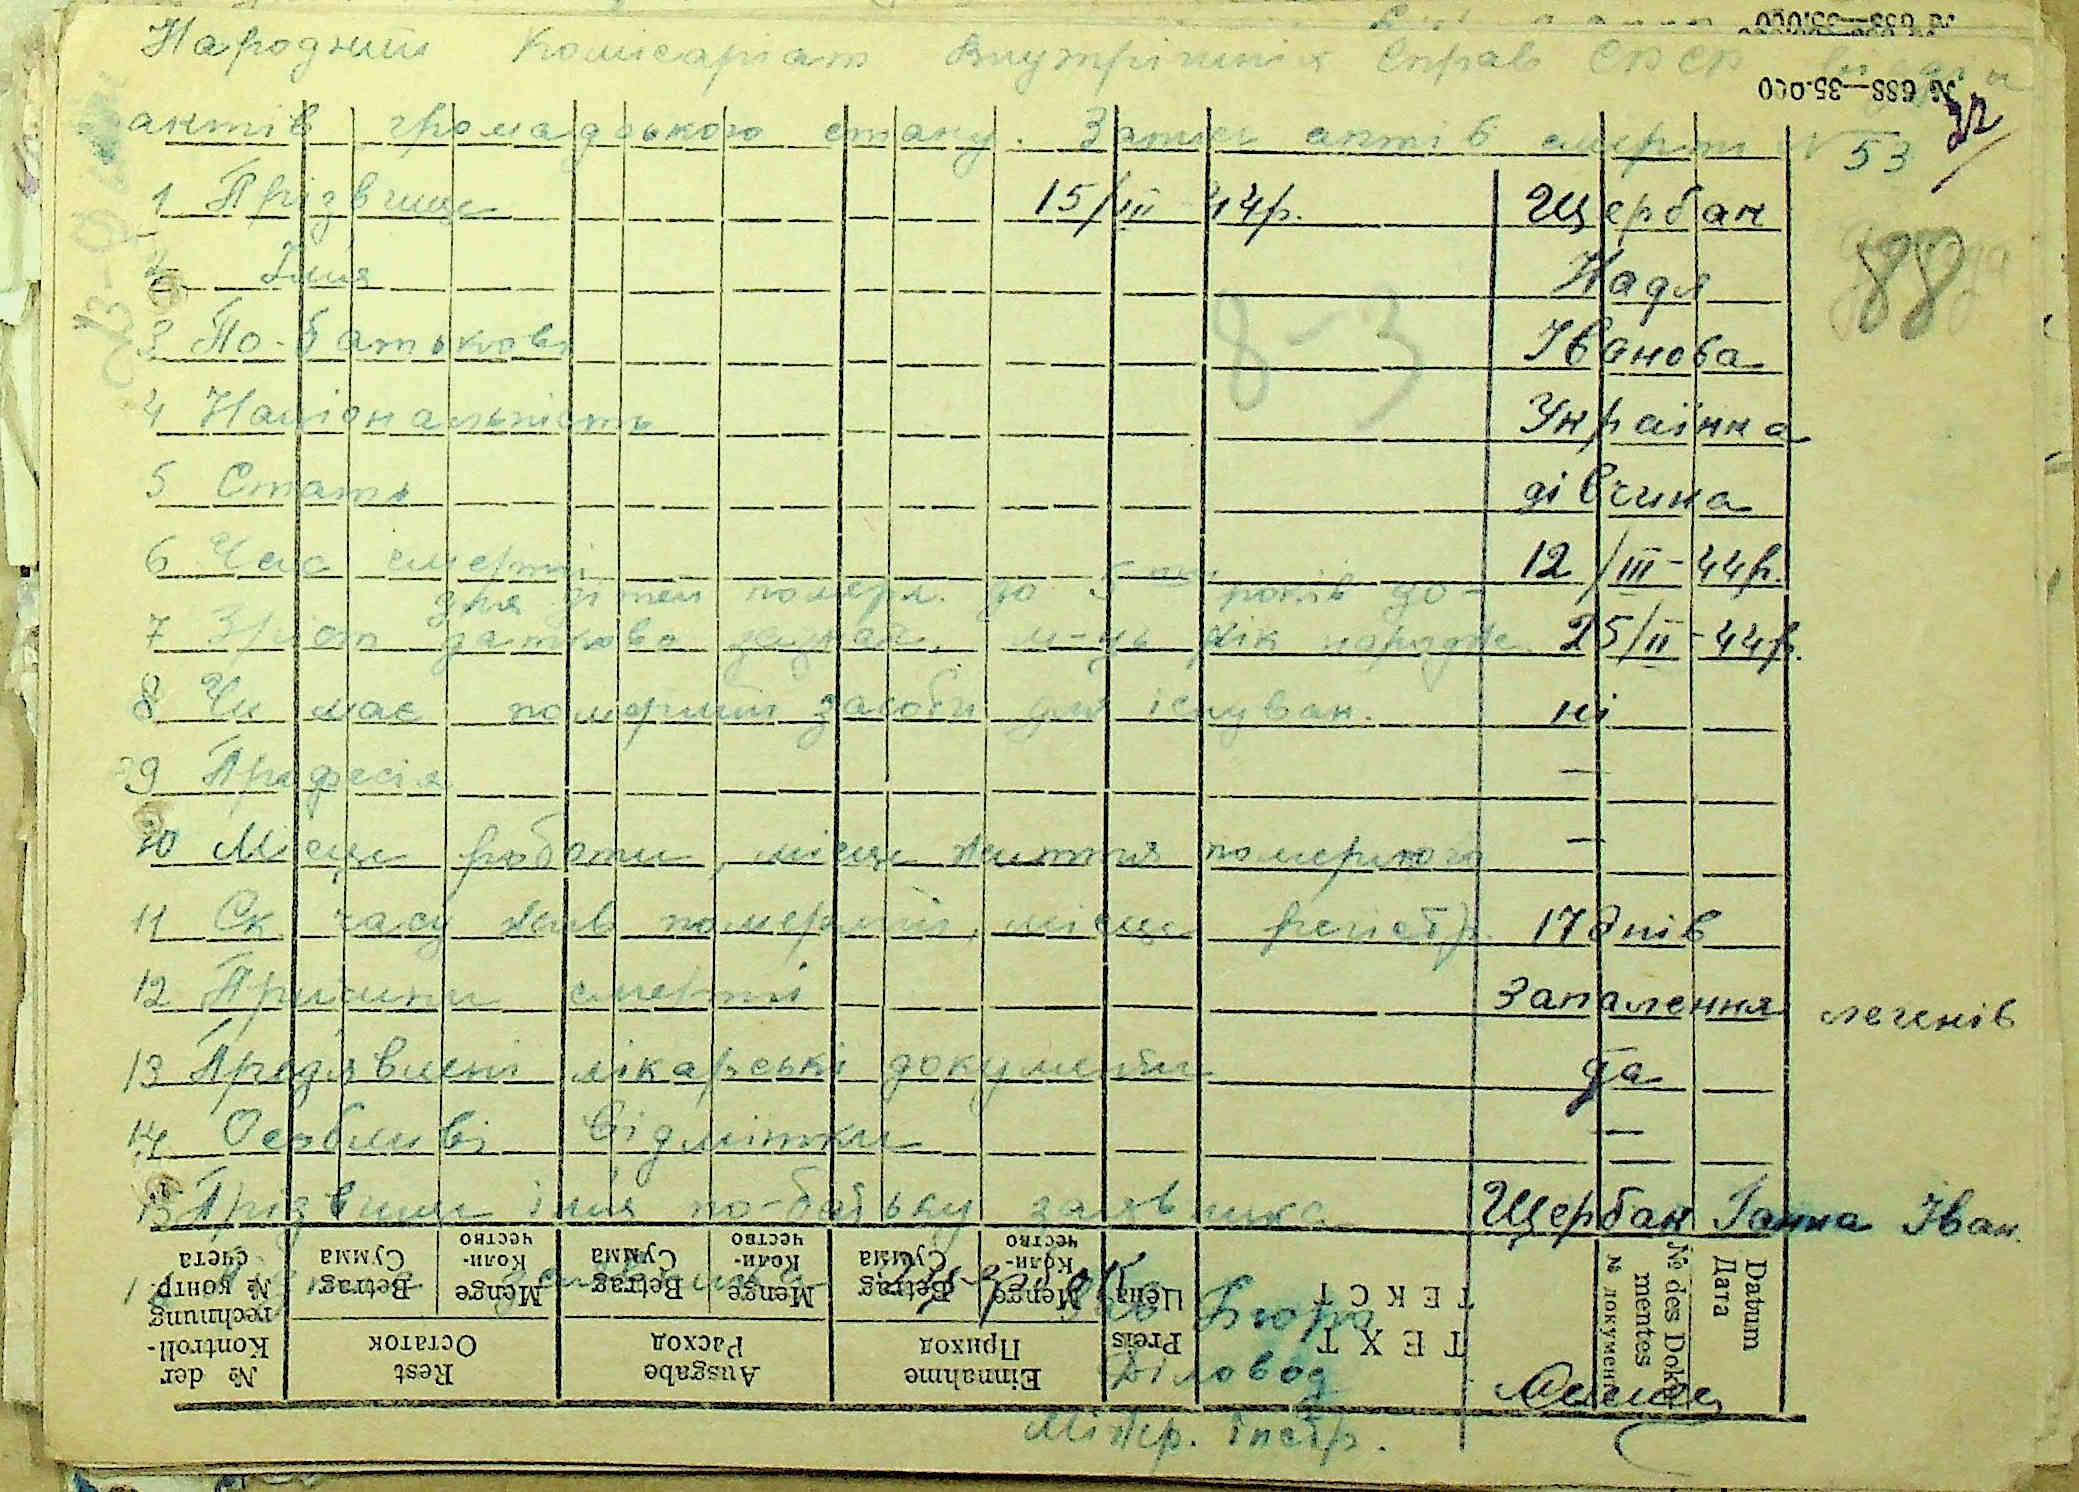 № 688—35.000
Народний Комісаріат Внутрішніх Справ СРСР відділ
актів громадського стану. Запис актів смерти № 53
32
1 Прізвище 15/III-44р. Щербан
88
2 Імия Надя
8-3
3 По-батькові Іванова
4 Національність Українка
5 Стать дівчина
6 Час смерті 12/III-44р.
для дітей помер. до 5 років до-
7 Зріст датково м-ць рік нородже. 25/II-44р.
8 Чи має померший засоби для існуван. ні
9 Професія —
10 Місце роботи, місце життя помершого —
11 Ск. часу жив померший, місце регістр. 17 днів
12 Причини смерті Запалення легенів
13 Предявлені лікарські документи да
14 Особливі відмітки —
15 Прізвище імя по-батьку заявника Щербан Ганна Іван.
Бюро
Діловод
Міжр. інстр.
Datum
Дата
№ des Doku-
mentes
№ документ
TEXT
ТЕКСТ
Preis
Цена
Einnahme
Приход
Menge
Коли-
чество
Betrag
Сумма
Ausgabe
Расход
Menge
Коли-
чество
Betrag
Сумма
Rest
Остаток
Menge
Коли-
чество
Betrag
Сумма
№ der
Kontroll-
rechnung
№ контр.
счета